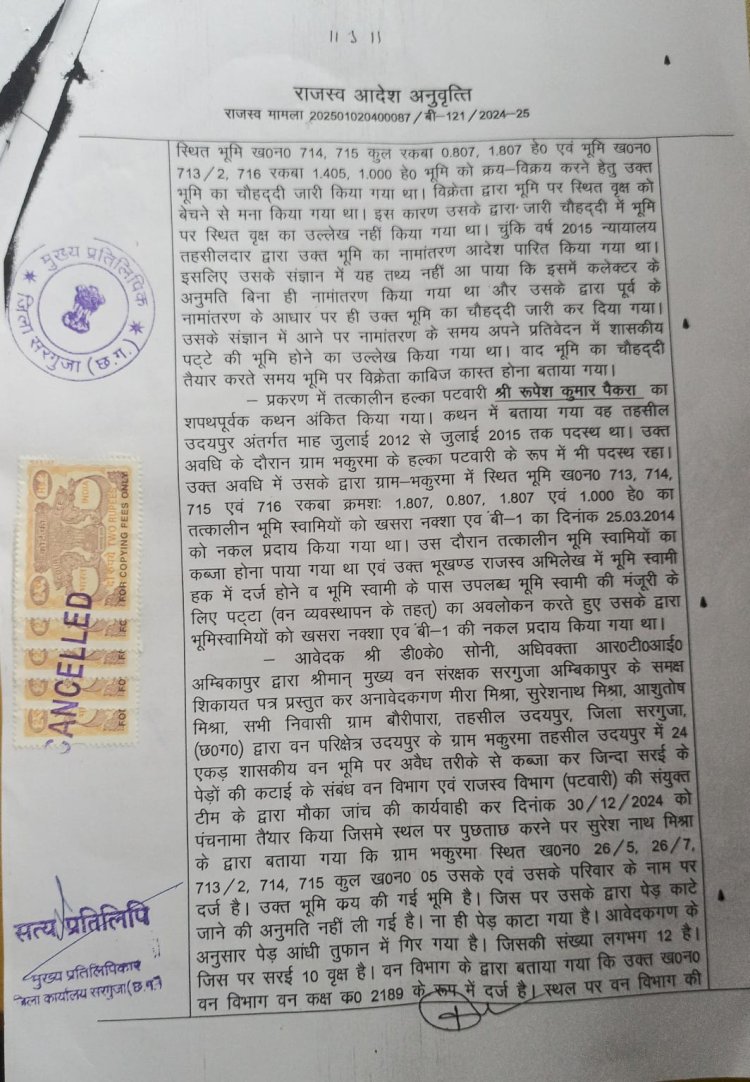 ॥ 3 ॥
राजस्व आदेश अनुवृत्ति
राजस्व मामला 202501020400087/बी-121/2024-25
स्थित भूमि ख0न0 714, 715 कुल रकबा 0.807, 1.807 हे0 एवं भूमि ख0न0
713/2, 716 रकबा 1.405, 1.000 हे0 भूमि को क्रय-विक्रय करने हेतु उक्त
भूमि का चौहद्दी जारी किया गया था। विक्रेता द्वारा भूमि पर स्थित वृक्ष को
बेचने से मना किया गया था। इस कारण उसके द्वारा जारी चौहद्दी में भूमि
पर स्थित वृक्ष का उल्लेख नहीं किया गया था। चुंकि वर्ष 2015 न्यायालय
तहसीलदार द्वारा उक्त भूमि का नामांतरण आदेश पारित किया गया था।
इसलिए उसके संज्ञान में यह तथ्य नहीं आ पाया कि इसमें कलेक्टर के
अनुमति बिना ही नामांतरण किया गया था और उसके द्वारा पूर्व के
नामांतरण के आधार पर ही उक्त भूमि का चौहद्दी जारी कर दिया गया।
उसके संज्ञान में आने पर नामांतरण के समय अपने प्रतिवेदन में शासकीय
पट्टे की भूमि होने का उल्लेख किया गया था। वाद भूमि का चौहद्दी
तैयार करते समय भूमि पर विक्रेता काबिज कास्त होना बताया गया।
– प्रकरण में तत्कालीन हल्का पटवारी श्री रूपेश कुमार पैकरा का
शपथपूर्वक कथन अंकित किया गया। कथन में बताया गया वह तहसील
उदयपुर अंतर्गत माह जुलाई 2012 से जुलाई 2015 तक पदस्थ था। उक्त
अवधि के दौरान ग्राम भकुरमा के हल्का पटवारी के रूप में भी पदस्थ रहा।
उक्त अवधि में उसके द्वारा ग्राम-भकुरमा में स्थित भूमि ख0न0 713, 714,
715 एवं 716 रकबा क्रमशः 1.807, 0.807, 1.807 एवं 1.000 हे0 का
तत्कालीन भूमि स्वामियों को खसरा नक्शा एव बी-1 का दिनांक 25.03.2014
को नकल प्रदाय किया गया था। उस दौरान तत्कालीन भूमि स्वामियों का
कब्जा होना पाया गया था एवं उक्त भूखण्ड राजस्व अभिलेख में भूमि स्वामी
हक में दर्ज होने व भूमि स्वामी के पास उपलब्ध भूमि स्वामी की मंजूरी के
लिए पट्टा (वन व्यवस्थापन के तहत्) का अवलोकन करते हुए उसके द्वारा
भूमिस्वामियों को खसरा नक्शा एव बी-1 की नकल प्रदाय किया गया था।
– आवेदक श्री डी0के0 सोनी, अधिवक्ता आर0टी0आई0
अम्बिकापुर द्वारा श्रीमान् मुख्य वन संरक्षक सरगुजा अम्बिकापुर के समक्ष
शिकायत पत्र प्रस्तुत कर अनावेदकगण मीरा मिश्रा, सुरेशनाथ मिश्रा, आशुतोष
मिश्रा, सभी निवासी ग्राम बौरीपारा, तहसील उदयपुर, जिला सरगुजा,
(छ0ग0) द्वारा वन परिक्षेत्र उदयपुर के ग्राम भकुरमा तहसील उदयपुर में 24
एकड़ शासकीय वन भूमि पर अवैध तरीके से कब्जा कर जिन्दा सरई के
पेड़ों की कटाई के संबंध वन विभाग एवं राजस्व विभाग (पटवारी) की संयुक्त
टीम के द्वारा मौका जांच की कार्यवाही कर दिनांक 30/12/2024 को
पंचनामा तैयार किया जिसमे स्थल पर पुछताछ करने पर सुरेश नाथ मिश्रा
के द्वारा बताया गया कि ग्राम भकुरमा स्थित ख0न0 26/5, 26/7,
713/2, 714, 715 कुल ख0न0 05 उसके एवं उसके परिवार के नाम पर
दर्ज है। उक्त भूमि कय की गई भूमि है। जिस पर उसके द्वारा पेड़ काटे
जाने की अनुमति नहीं ली गई है। ना ही पेड़ काटा गया है। आवेदकगण के
अनुसार पेड़ आंधी तुफान में गिर गया है। जिसकी संख्या लगभग 12 है।
जिस पर सरई 10 वृक्ष है। वन विभाग के द्वारा बताया गया कि उक्त ख0न0
वन विभाग वन कक्ष क0 2189 के रूप में दर्ज है। स्थल पर वन विभाग की
मुख्य प्रतिलिपिक
जिला सरगुजा (छ.ग.)
INDIA
TWO RUPEES
FOR COPYING FEES ONLY
CANCELLED
सत्य प्रतिलिपि
मुख्य प्रतिलिपिकार
जिला कार्यालय सरगुजा (छ.ग.)